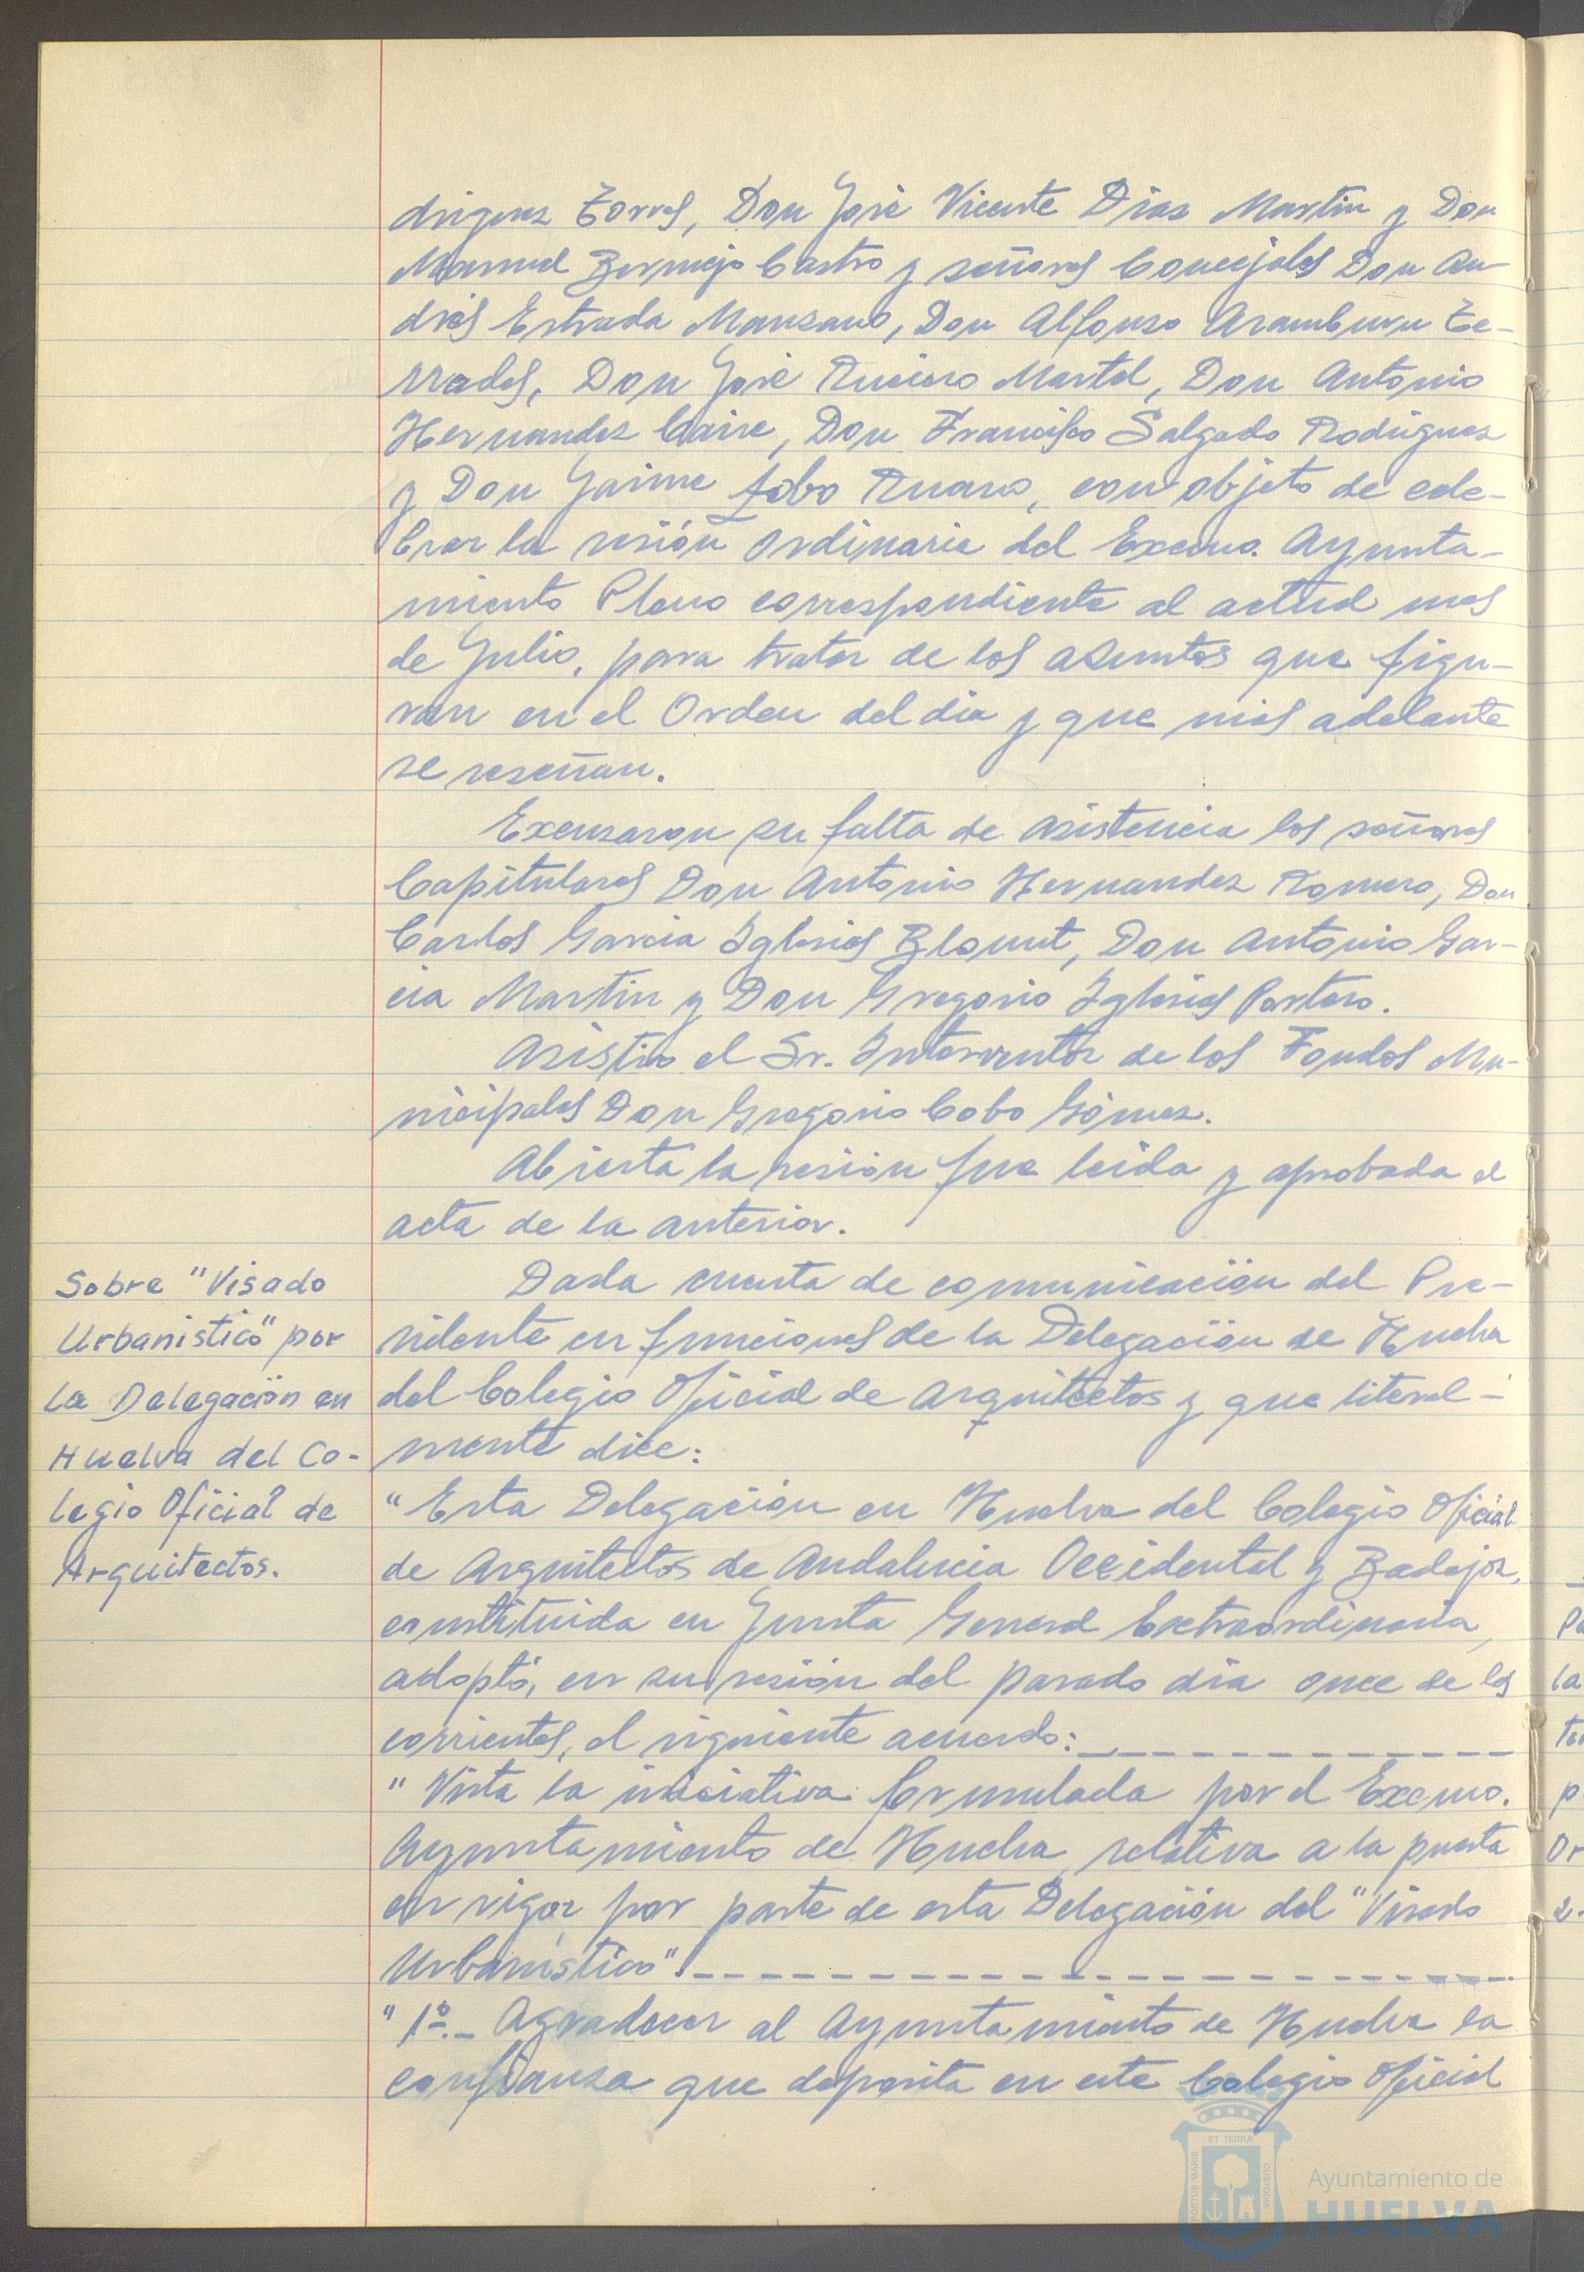 driguez Torres, Don José Vicente Díaz Martin y Don
Manuel Bermejo Castro y señores Concejales Don An-
drés Estrada Manzano, Don Alfonso Aramburu Te-
rrades, Don José Ruciero Martel, Don Antonio
Hernandez Caire, Don Francisco Salgado Rodriguez
y Don Jaime Lobo Ruano, con objeto de cele-
brar la sesión Ordinaria del Excmo. Ayunta-
miento Pleno correspondiente al actual mes
de Julio, para tratar de los asuntos que figu-
ran en el Orden del dia y que más adelante
se reseñan.
Excusaron su falta de asistencia los señores
Capitulares Don Antonio Hernandez Romero, Don
Carlos Garcia Iglesias Blount, Don Antonio Gar-
cia Martin y Don Gregorio Iglesias Portero.
Asistio el Sr. Interventor de los Fondos Mu-
nicipales Don Gregorio Cobo Gómez.
Abierta la sesion fue leida y aprobada el
acta de la anterior.
Sobre "Visado
Urbanistico" por
la Delegación en
Huelva del Co-
legio Oficial de
Arquitectos.
Dada cuenta de comunicación del Pre-
sidente en funciones de la Delegación de Huelva
del Colegio Oficial de Arquitectos y que literal-
mente dice:
"Esta Delegación en Huelva del Colegio Oficial
de Arquitectos de Andalucia Occidental y Badajoz,
constituida en Junta General Extraordinaria,
adoptó, en su sesión del pasado día once de los
corrientes, el siguiente acuerdo:
"Vista la iniciativa formulada por el Excmo.
Ayuntamiento de Huelva, relativa a la puesta
en vigor por parte de esta Delegación del "Visado
Urbanístico".
"1º.- Agradecer al Ayuntamiento de Huelva la
confianza que deposita en este Colegio Oficial
ET TERRÆ
PORTUS MARIS
CUSTODIA
Ayuntamiento de
HUELVA